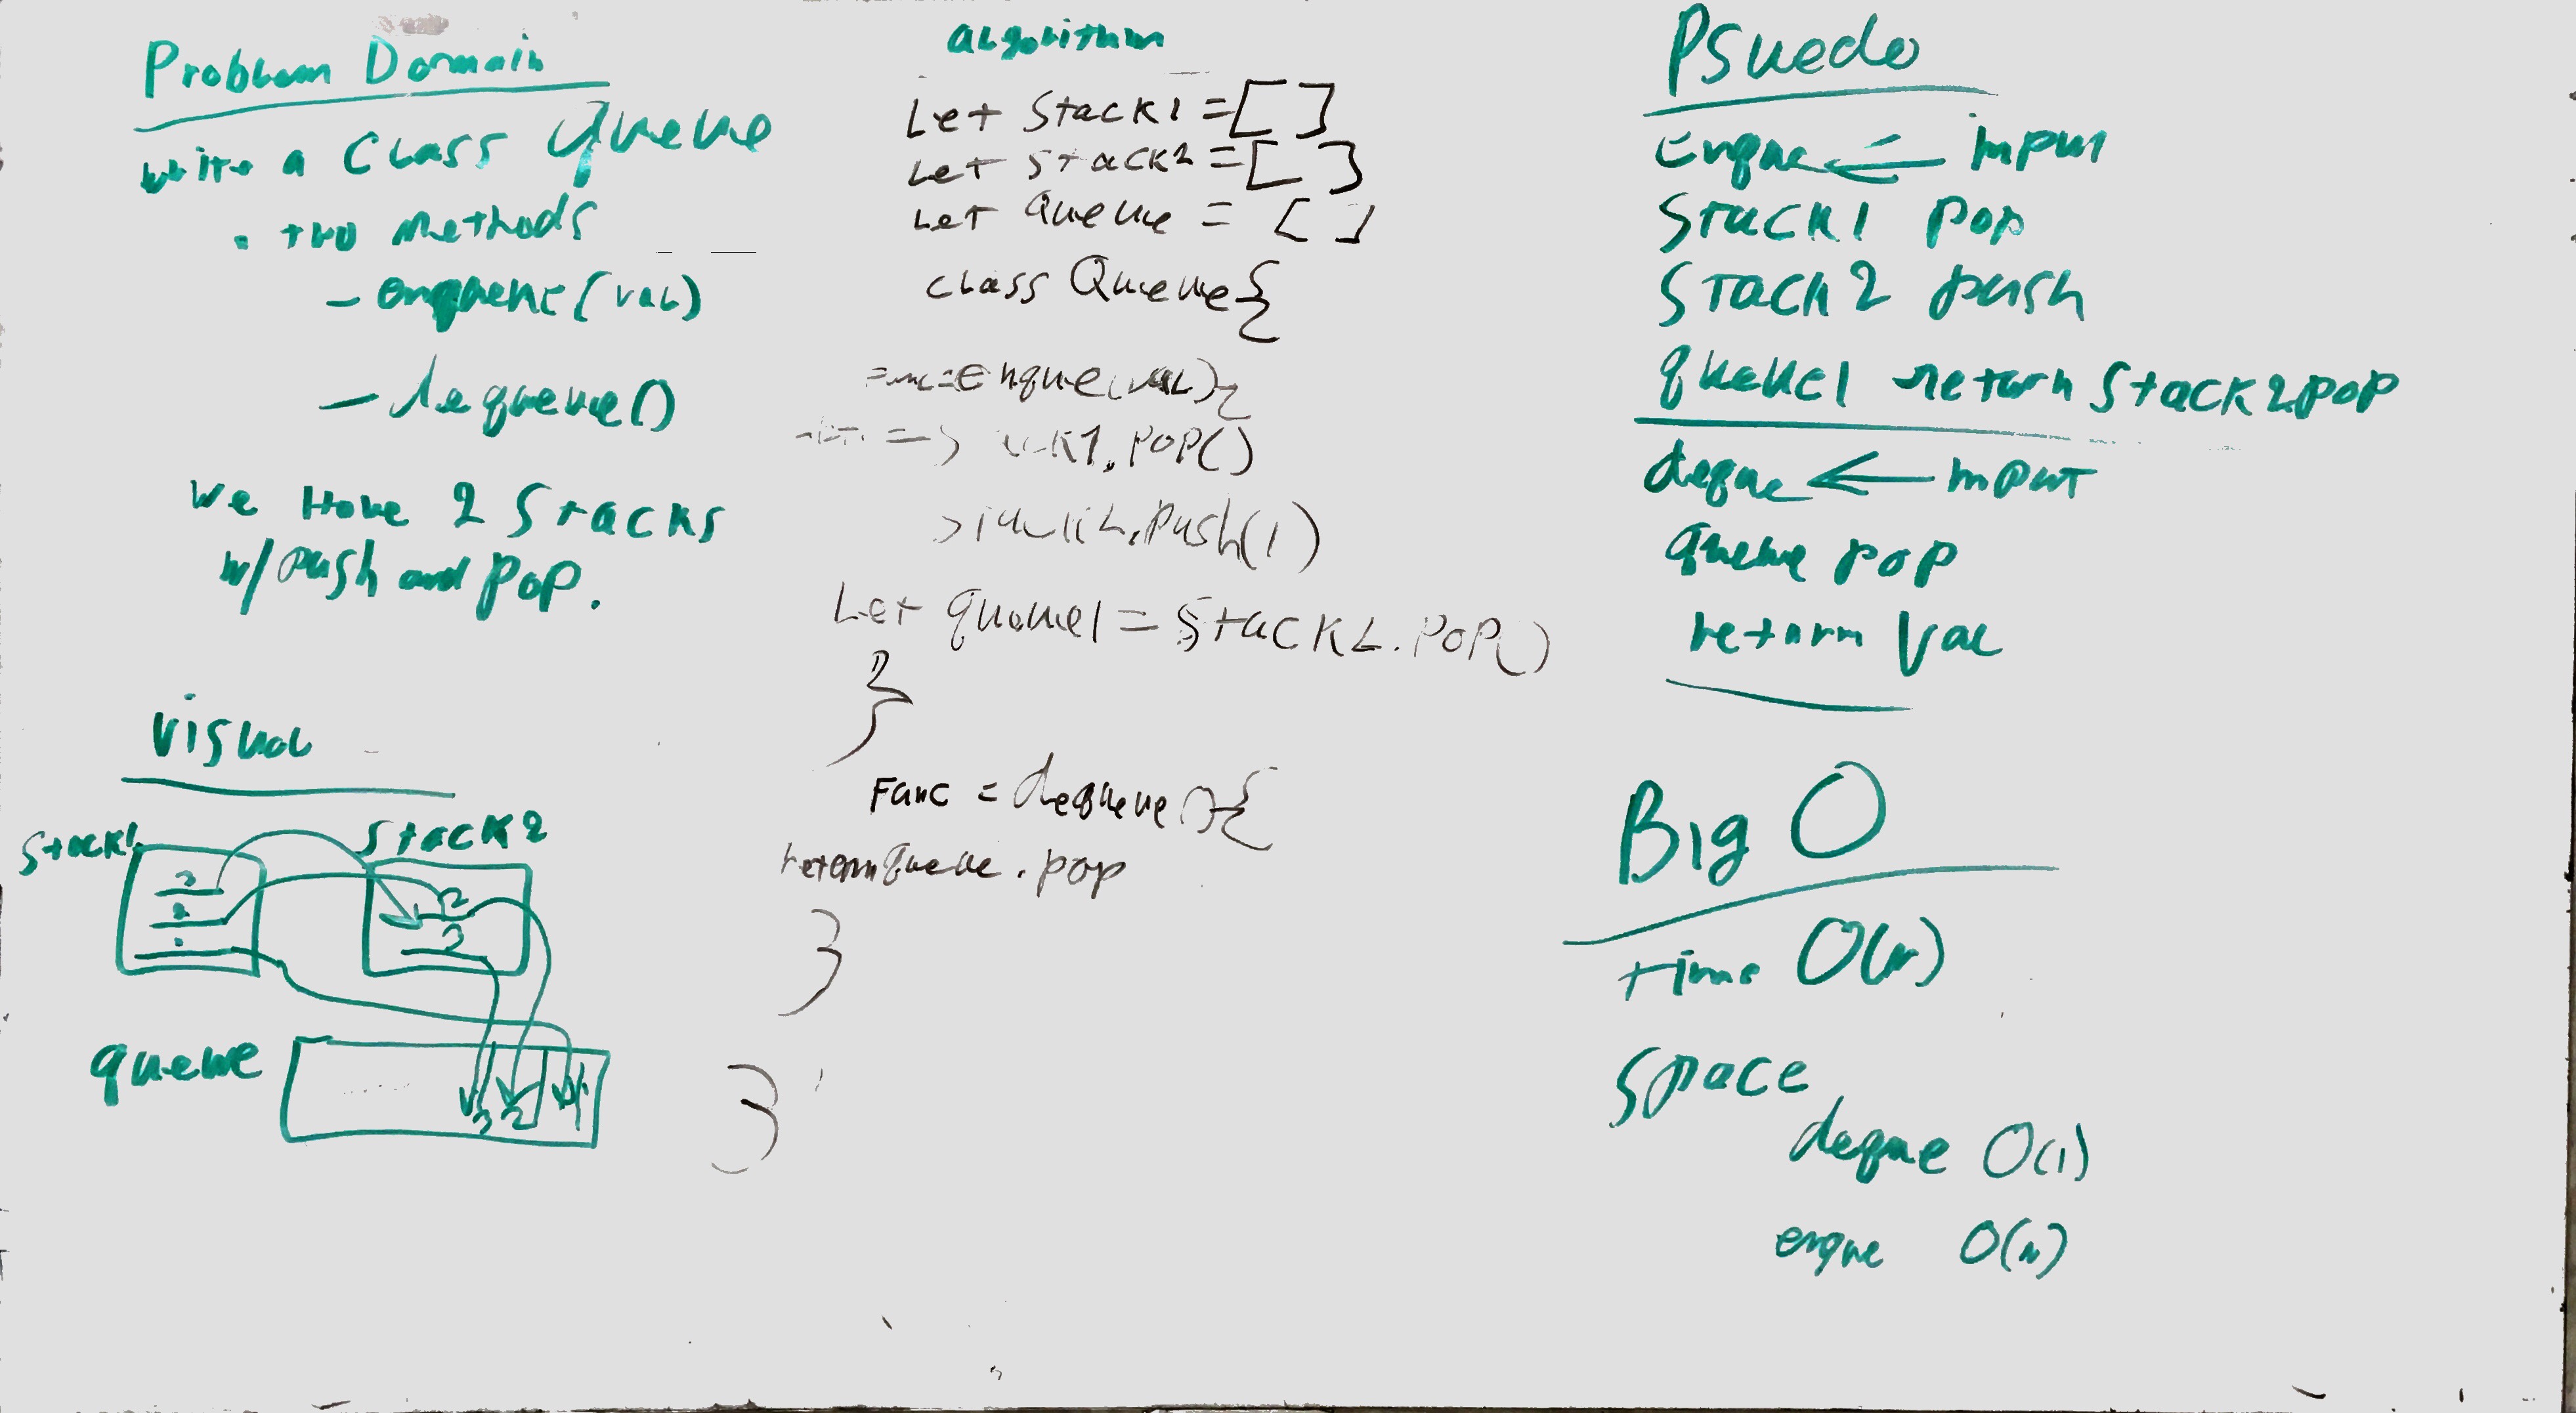 Problem Domain
write a Class Queue
. two Methods
- enqueue(val)
- dequeue()
we Have 2 Stacks
w/ push and pop.
visual
Stack1 Stack2
3
2
1
2
3
queue
3 2 1
algorithm
Let Stack1 = [ ]
Let Stack2 = [ ]
Let Queue = [ ]
class Queue {
Func = Enque(val){
=> .pop()
.push(1)
Let queue1 = Stack2.pop()
}
Func = dequeue(){
return queue.pop
}
}
Psuedo
Enque ← input
Stack1 pop
Stack2 push
queue1 return Stack2 pop
deque ← input
queue pop
return val
Big O
time O(n)
Space
deque O(1)
enque O(n)